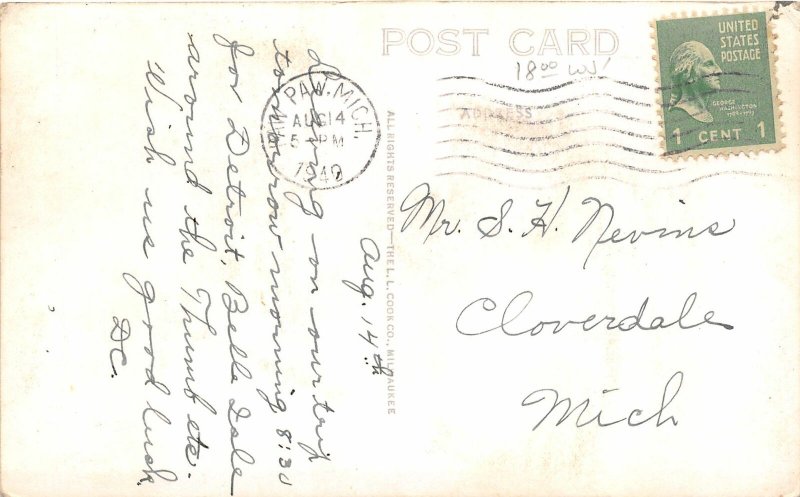 POST CARD
18⁰⁰ WS'
ADDRESS
UNITED
STATES
POSTAGE
GEORGE
WASHINGTON
1789-1797
1 CENT 1
PAW PAW, MICH.
AUG 14
5 PM
1940
Aug. 14th
Leaving on our trip
tomorrow morning 8:30
for Detroit, Belle Isle
around the Thumb etc.
Wish us good luck
DC.
ALL RIGHTS RESERVED—THE L. L. COOK CO., MILWAUKEE
Mr. S. H. Nevins
Cloverdale
Mich